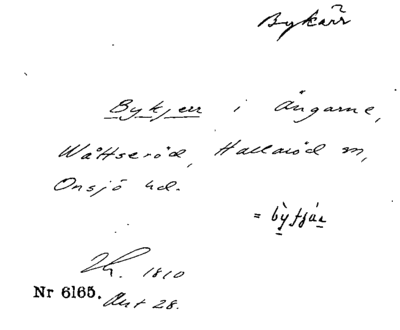 Bykärr
Bykjerr i Ängarne,
Wåttseröd, Hallaröd sn,
Onsjö hd.
= bỳtjár
1810
Nr 6165. Akt 28.